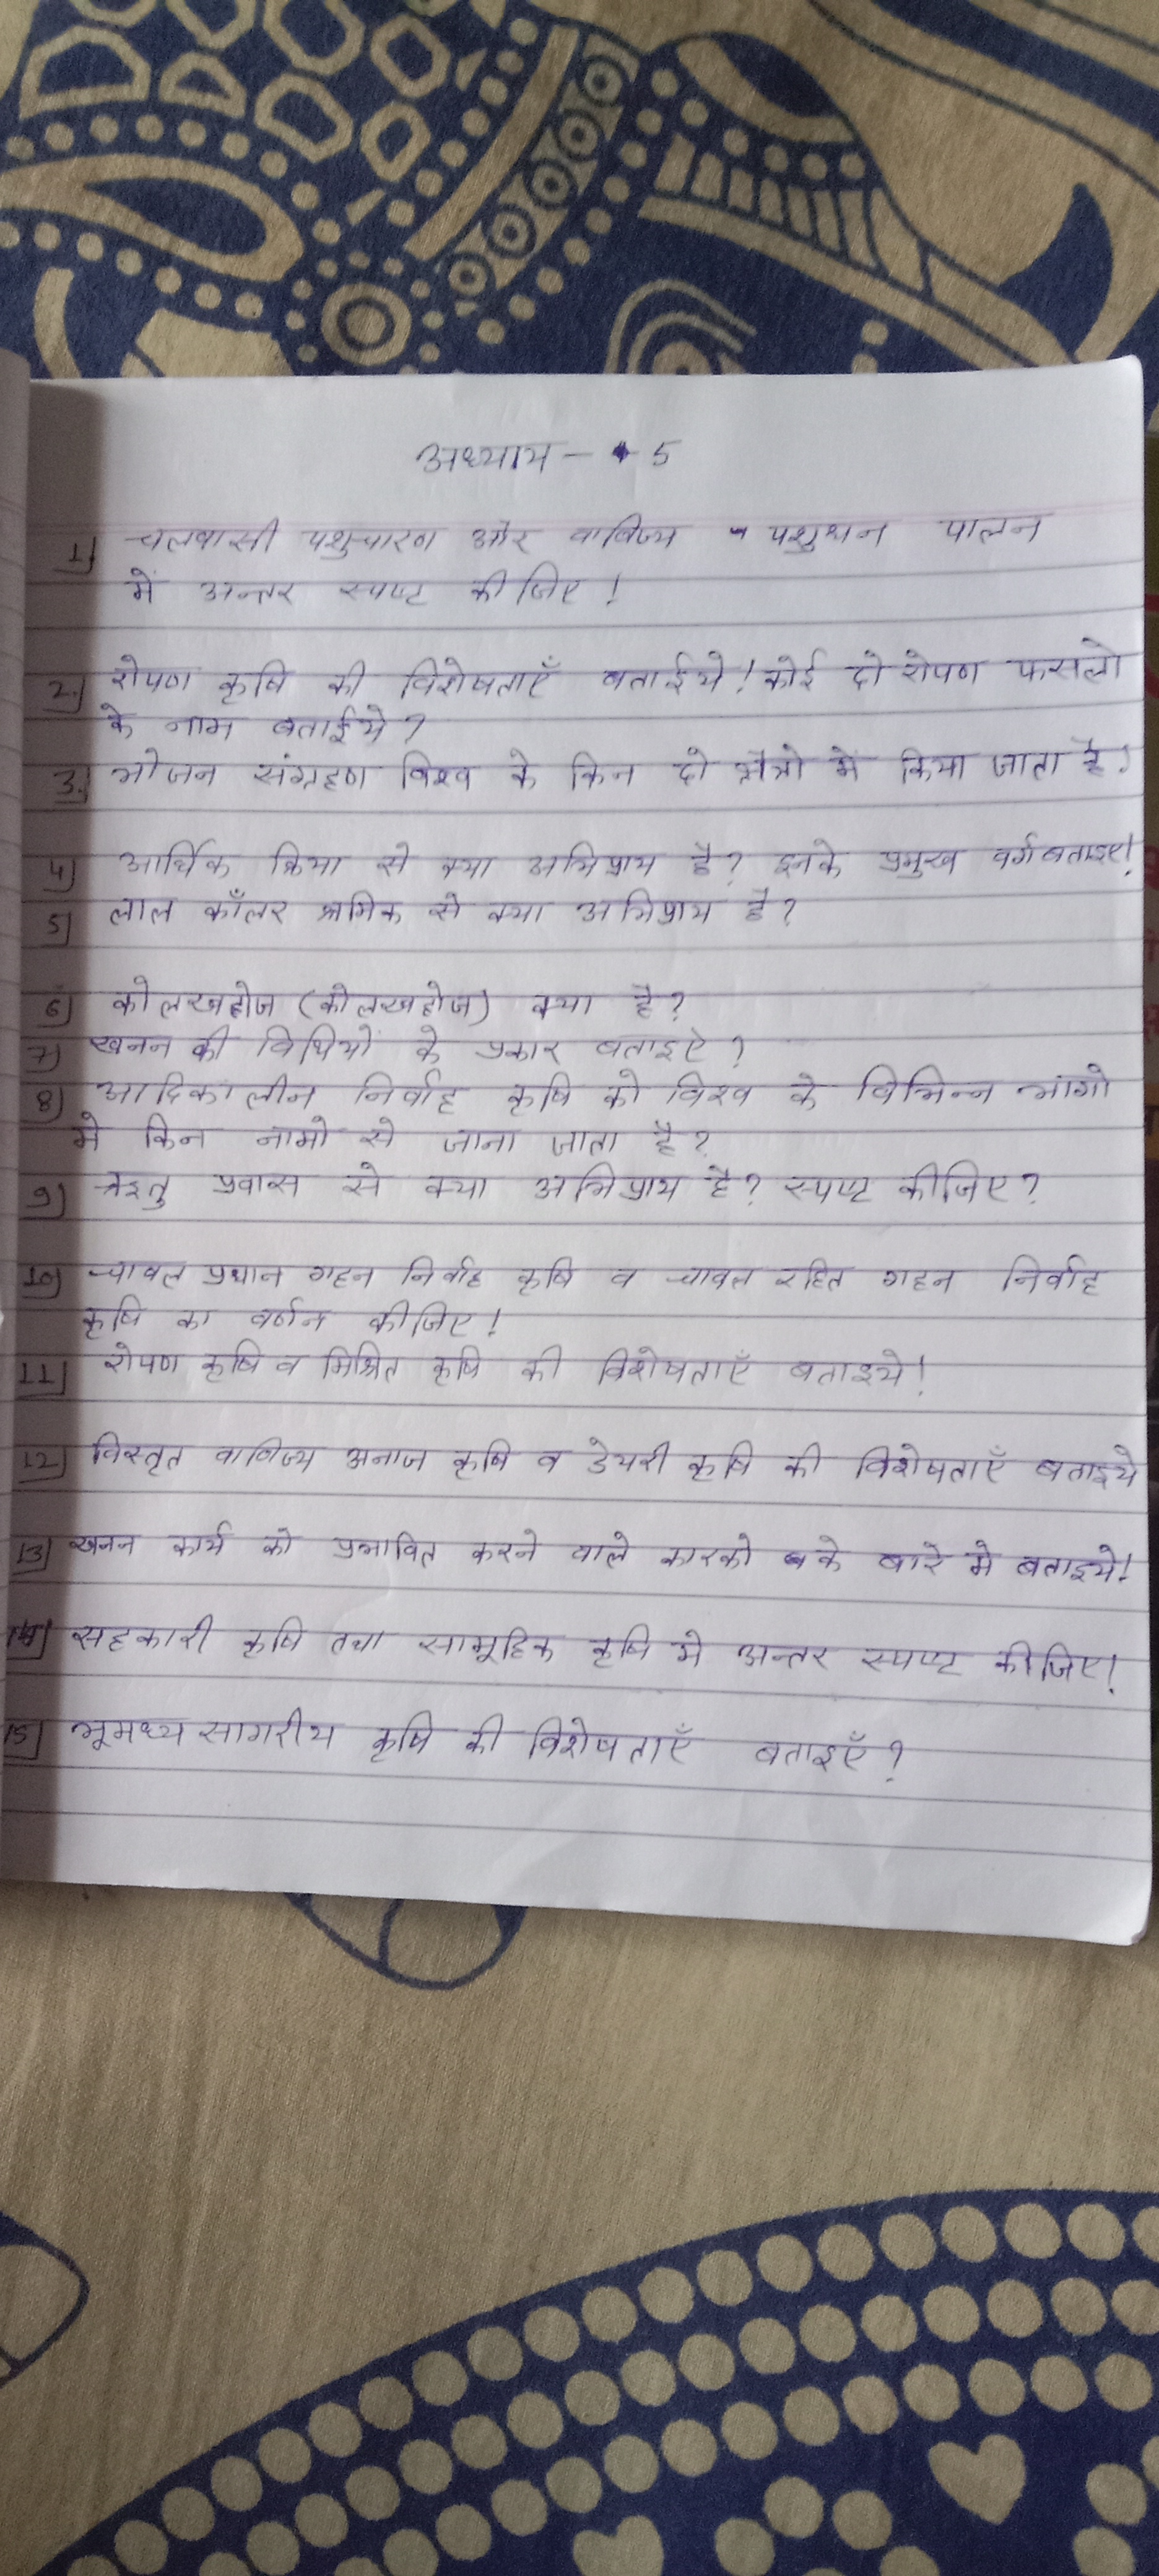 अध्याय - 5
1) चलवासी पशुचारण और वाणिज्य - पशुधन पालन
में अन्तर स्पष्ट कीजिए !
2.) रोपण कृषि की विशेषताएँ बताईये ! कोई दो रोपण फसलो
के नाम बताईये ?
3.) भोजन संग्रहण विश्व के किन दो क्षैत्रो में किया जाता है !
4) आर्थिक क्रिया से क्या अभिप्राय है ? इनके प्रमुख वर्ग बताइए !
5) लाल काँलर श्रमिक से क्या अभिप्राय है ?
6) कोलखहोज (कोलखहोज) क्या है ?
7) खनन की विधियों के प्रकार बताइऐ ?
8) आदिकालीन निर्वाह कृषि को विश्व के विभिन्न भागो
मे किन नामो से जाना जाता है ?
9) ऋतु प्रवास से क्या अभिप्राय है ? स्पष्ट कीजिए ?
10) चावल प्रधान गहन निर्वाह कृषि व चावल रहित गहन निर्वाह
कृषि का वर्णन कीजिए !
11) रोपण कृषि व मिश्रित कृषि की विशेषताएँ बताइये !
12) विस्तृत वाणिज्य अनाज कृषि व डेयरी कृषि की विशेषताएँ बताइये
13) खनन कार्य को प्रभावित करने वाले कारको के बारे मे बताइये !
14) सहकारी कृषि तथा सामूहिक कृषि मे अन्तर स्पष्ट कीजिए !
15) भूमध्य सागरीय कृषि की विशेषताएँ बताइएँ ?